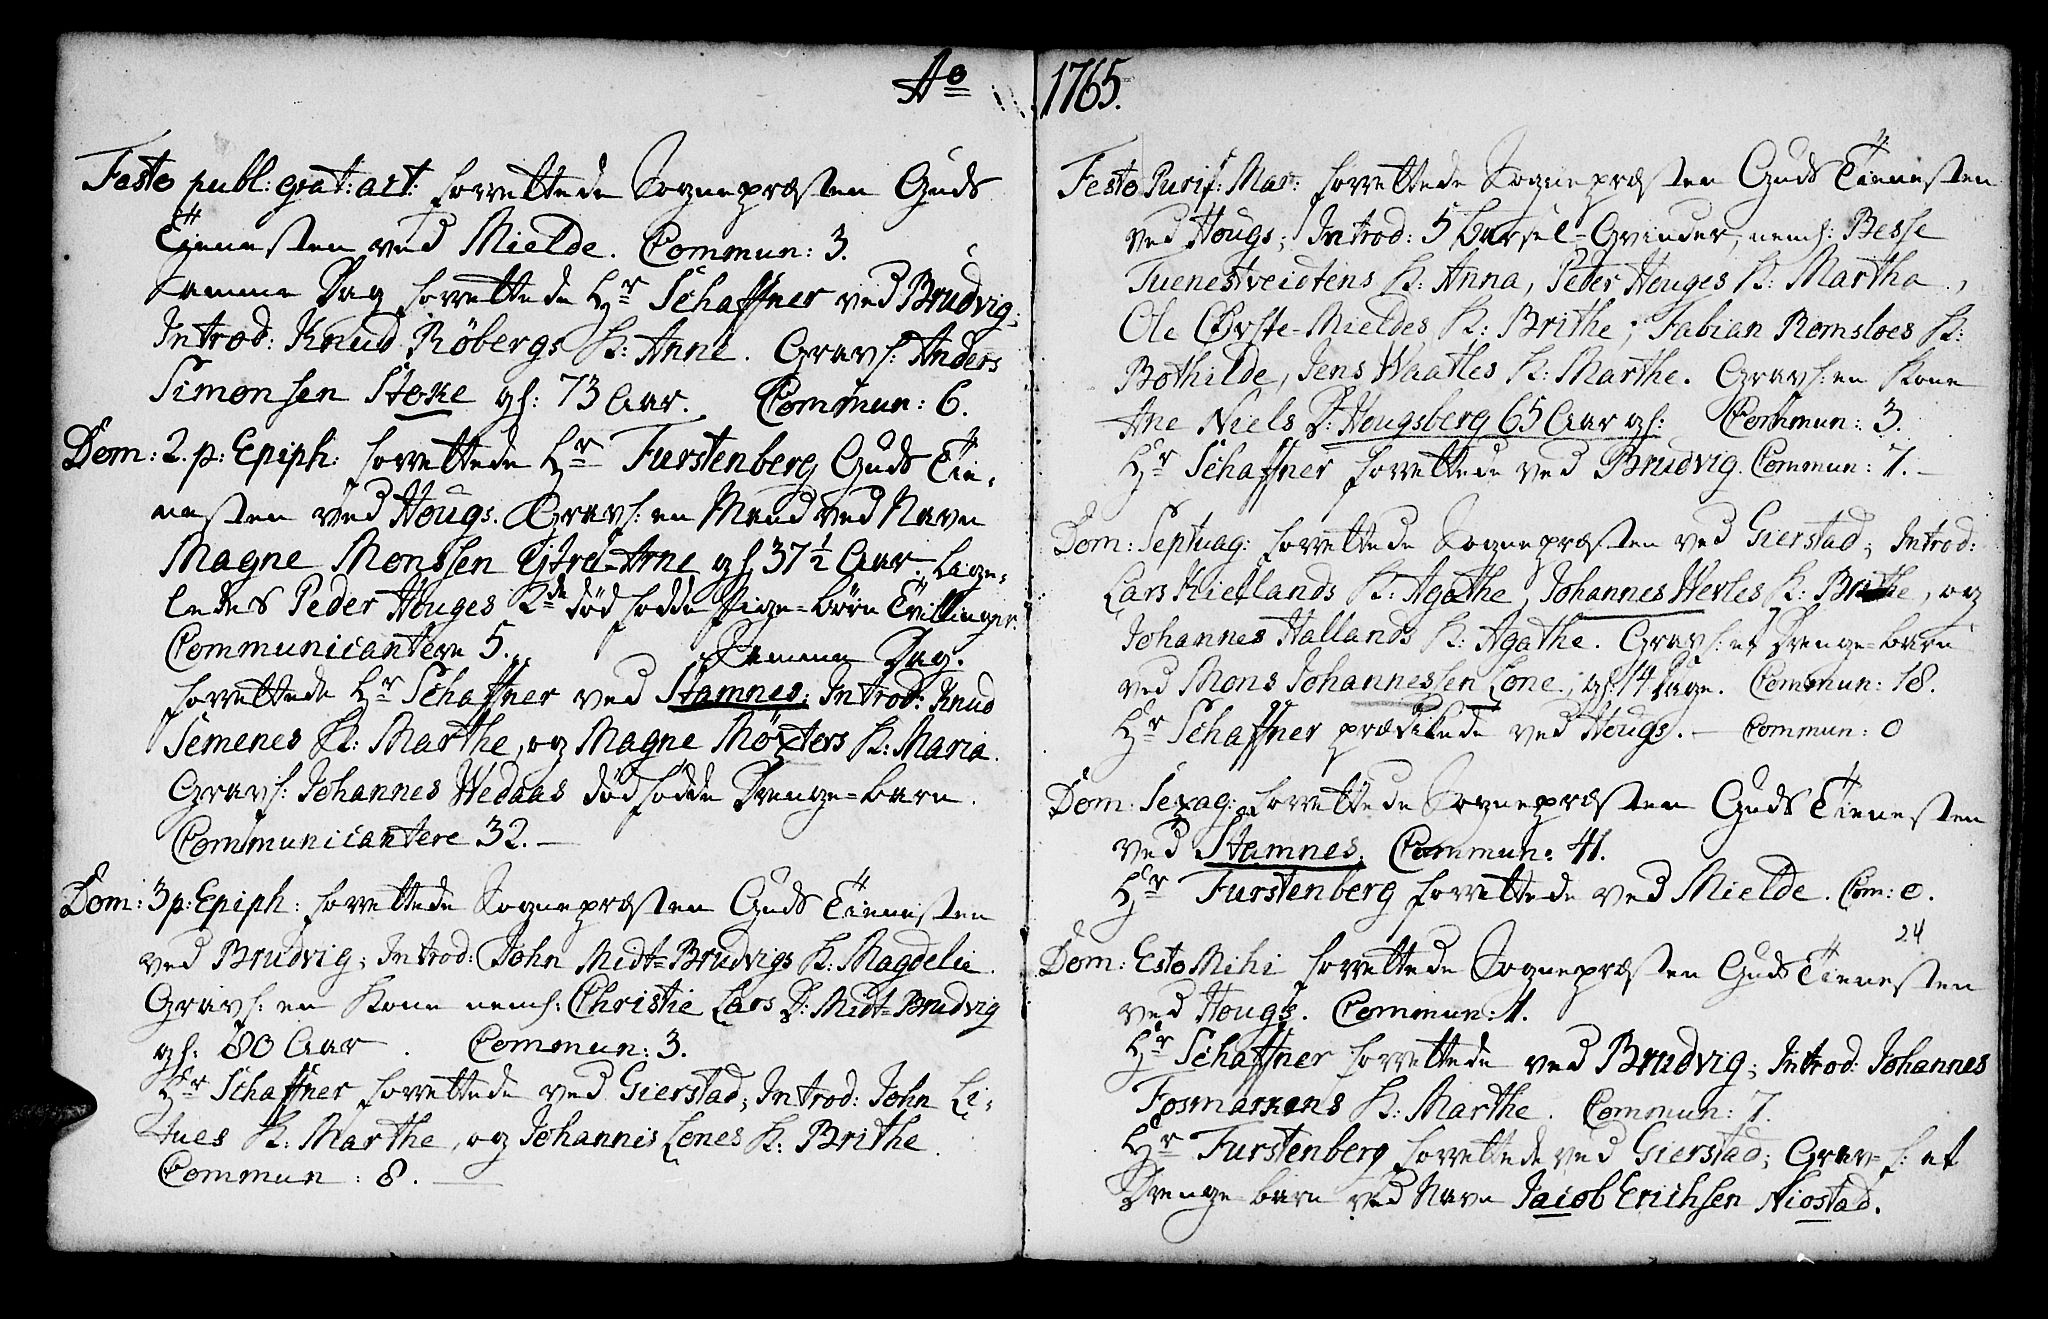 Ao
Festo publ: grat: act: forrettede Sognepræsten Guds
Tienesten ved Mielde. Commun: 3.
Samme Dag forrettede Hr Schaffner ved Brudvig;
Introd: Knud Röbergs K: Anne. Gravf: Anders
Simonsen Stoke gf: 73 Aar. Commun: 6.
Dom: 2. p: Epiph: forrettede Hr Furstenberg Guds Tie-
nesten ved Hougs. Gravf: en Mand ved Navn
Magne Monssen Ytre-Arne gf. 37½ Aar. Lige-
ledes Peder Houges 2de dödfödde Pige-börn Tvillinger.
Communicantere 5. Samme Dag.
forrettede Hr Schaffner ved Stamnes; Introd: Knud
Semenes K: Marthe, og Magne Möxters K: Maria.
Gravf: Johannes Wedaas dödfödde Drenge-barn.
Communicantere 32. —
Dom: 3 p: Epiph: forrettede Sognepræsten Guds Tienesten
ved Brudvig; Introd: John Midt-Brudvigs K: Magdeli.
Gravf: en Kone nemh: Christie Lars D: Midt-Brudvig
gf: 80 Aar. Commun: 3.
Hr Schaffner forrettede ved Gierstad; Introd: John Li-
K: Marthe, og Johannis Lenes K: Brithe.
Commun: 8. —
1765.
Festo Purif: Mar: forrettede Sognepræsten Guds Tienesten
ved Hougs; Introd: 5 Barsel-Qvinder, nemh: Besse
Tuenestveidtens K: Anna, Peter Houges K: Martha,
Ole Övste-Mieldes K: Brithe; Fabian Romsloes K:
Bothilde, Jens Waatles K: Marthe. Gravf: en Kone
Ane Niels D: Hougsberg 65 Aar gf: Commun: 3.
Hr Schaffner forrettede ved Brudvig. Commun: 7. —
Dom: Septuag: forrettede Sognepræsten ved Gierstad; Introd:
Lars Kietlands K: Agathe, Johannes Herles K: Brithe, og
Johannes Hallands K: Agathe. Gravf: et Drenge-barn
ved Mons Johannessen Lone, gf: 14 Dage. Commun: 18.
Hr Schaffner prædikede ved Hougs. — Commun: 0
Dom: Sexag: forrettede Sognepræsten Guds Tienesten
ved Stamnes. Commun: 41.
Hr Furstenberg forrettede ved Mielde. Com: 0.
24
Dom: Esto Mihi forrettede Sognepræsten Guds Tienesten
ved Hougs. Commun: 1.
Hr Schaffner forrettede ved Brudvig; Introd: Johannes
Fosmarkens K: Marthe. Commun: 7.
Hr Furstenberg forrettede ved Gierstad; Grav-f: et
Drenge-barn ved Navn Jacob Erichsen Niostad.